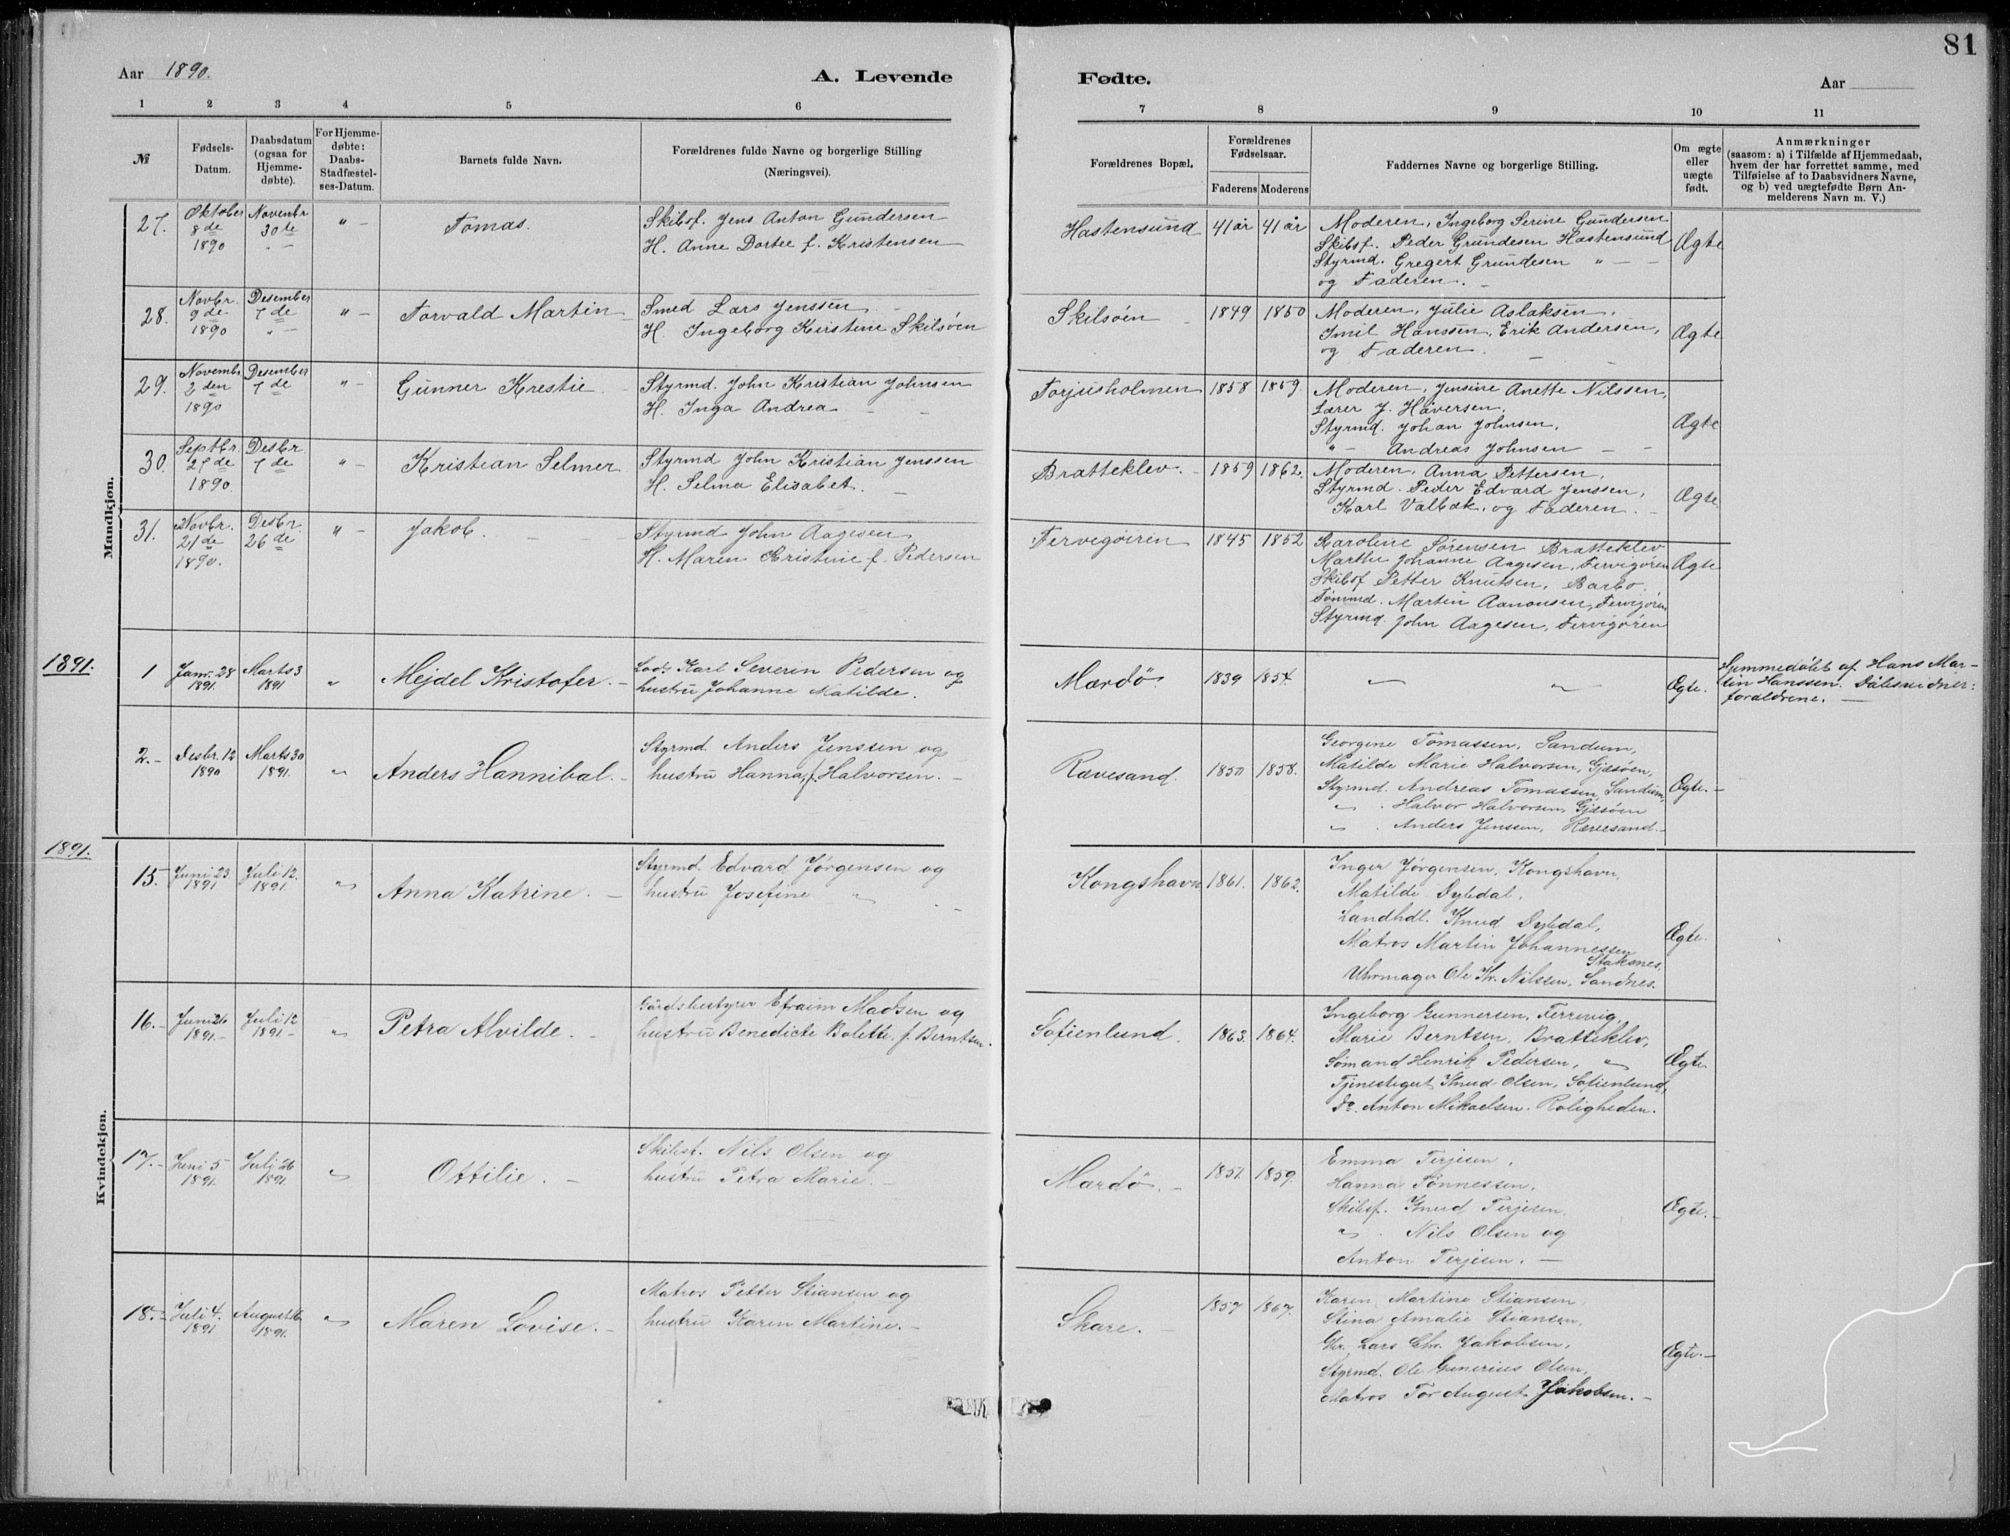 81
Aar 1890.
A. Levende
Fødte.
Aar
1 2 3 4 5 6 7 8 9 10 11
№
Fødsels-Datum.
Daabsdatum (ogsaa for Hjemme-døbte).
For Hjemme-døbte: Daabs-Stadfæstel-ses-Datum.
Barnets fulde Navn.
Forældrenes fulde Navne og borgerlige Stilling (Næringsvei).
Forældrenes Bopæl.
Forældrenes Fødselsaar.
Faderens Moderens
Faddernes Navne og borgerlige Stilling.
Om ægte eller uægte født.
Anmærkninger
(saasom: a) i Tilfælde af Hjemmedaab,
hvem der har forrettet samme, med
Tilføielse af to Daabsvidners Navne,
og b) ved uægtefødte Børn An-
melderens Navn m. V.)
Mandkjøn.
27. Oktober 8de 1890 Novenbr 30te " - " - Tomas.
Skibsf. Jens Anton Gundersen
H. Anne Dortee f. Kristensen
Hastensund 41 år 41 år
Moderen, Ingeborg Serine Gundersen
Skibsf. Peder Grundesen Hastensund
Styrmd. Gregert Grundesen " -
og Faderen.
Ægte
28. Novbr. 9de 1890 Desember 7de " - " - Torvald Martin
Smed Lars Jenssen
H. Ingeborg Kirstine Skilsøen
Skilsöin 1849 1850
Moderen, Julie Aslaksen,
Imil Hanssen, Erik Andersen,
og Faderen.
Ægte
29. Novembr. 2den 1890 Desember 7de " - Gunner Krestie
Styrmd. John Kristian Johnsen
H. Inga Andrea
Torjusholmen 1858 1859
Moderen, Jensine Anette Nilssen,
Lærer J. Håversen,
Styrmd. Johan Johnsen,
" - Andreas Johnsen
Ægte
30. Septbr. 1890 Desbr. 7de " - Kristian Selmer
Styrmd John Kristian Jenssen
H. Selma Elisabet.
Bratteklev. 1859 1862.
Moderen, Anna Pettersen,
Styrmd. Peder Edvard Jenssen,
Karl Valbæk, og Faderen.
Ægte
31. Novbr. 21de 1890. Desbr. 26de " - Jakob.
Styrmd John Aagesen
H. Maren Kristine f. Pedersen
Tervigøiren 1845 1852
Karoline Sørensen Bratteklev
Marthe Johanne Aagesen, Tervigøren
Skibsf Petter Knutsen, Barbo.
Tømmd. Martin Aanonsen, Tervigøren
Styrmd. John Aagesen, Tervigøren
Ægte
1891.
1 Janr. 28 1891. Marts 3 1891 " Mejdel Kristofer.
Lods Karl Severin Pedersen og
hustru Johanne Matilde.
Mærdø. 1839 1854.
" "
Ægte.
Hjemmedøbt af Hans Mar-
tin Hanssen. Dåbsvidner:
foraldrene.
2. Desbr. 12 1890 Marts 30 1891. " Anders Hannibal.
Styrmd. Anders Jenssen og
hustru Hanna, f. Halvorsen.
Rævesand. 1850 1858.
Georgene Tomassen, Sandum,
Matilde Marie Halvorsen, Gjæsøen,
Styrmd. Andreas Tomassen, Sandum,
" . Halvor Halvorsen, Gjæsøen
" . Anders Jenssen, Rævesand.
Ægte.
1891.
Kvindekjøn.
15. Juni 23 1891 Juli 12. 1891. " Anna Katrine.
Styrmd. Edvard Jørgensen og
hustru Josefine "
Kongshavn 1861. 1862.
Inger Jørgensen, Kongshavn,
Matilde Dybdal,
Landhdl. Knud Dybdal,
Matros Martin Johannessen
Staksnes,
Uhrmager Ole Kr. Nilssen, Sandnes.
Ægte.
16. Juni 26 1891. Juli 12 1891. " Petra Alvilde.
Gårdsbestyrer Efraim Madsen og
hustru Benedicte Bolette f. Berntsen.
Sofienlund. 1863. 1864.
Ingeborg Gunnersen, Ferrevig,
Marie Berntsen, Bratteklev,
Sømand Henrik Pedersen, "
Tjenestegut Knud Olsen, Sofienlund,
Do. Anton Mikaelsen. Roligheden.
Ægte
17. Juni 5 1891. Juli 26 1891. " Ottilie.
Skibsf. Nils Olsen og
hustru Petra Marie.
Mærdø. 1851. 1859.
Emma Terjesen,
Hanna Tønnessen,
Skibsf. Knud Terjesen.
" . Nils Olsen og
Anton Terjesen.
Ægte.
18. Juli 4. 1891 August 16 1891. " Maren Lovise.
Matros Petter Stiansen og
hustru Karen Martine.
Skare. 1857 1867.
Karen Martine Stiansen,
Stina Amalie Stiansen,
Lars Chr. Jakobsen,
Styrmd. Ole Gunerius Olsen,
Matros Tor August Jakobsen.
Ægte.